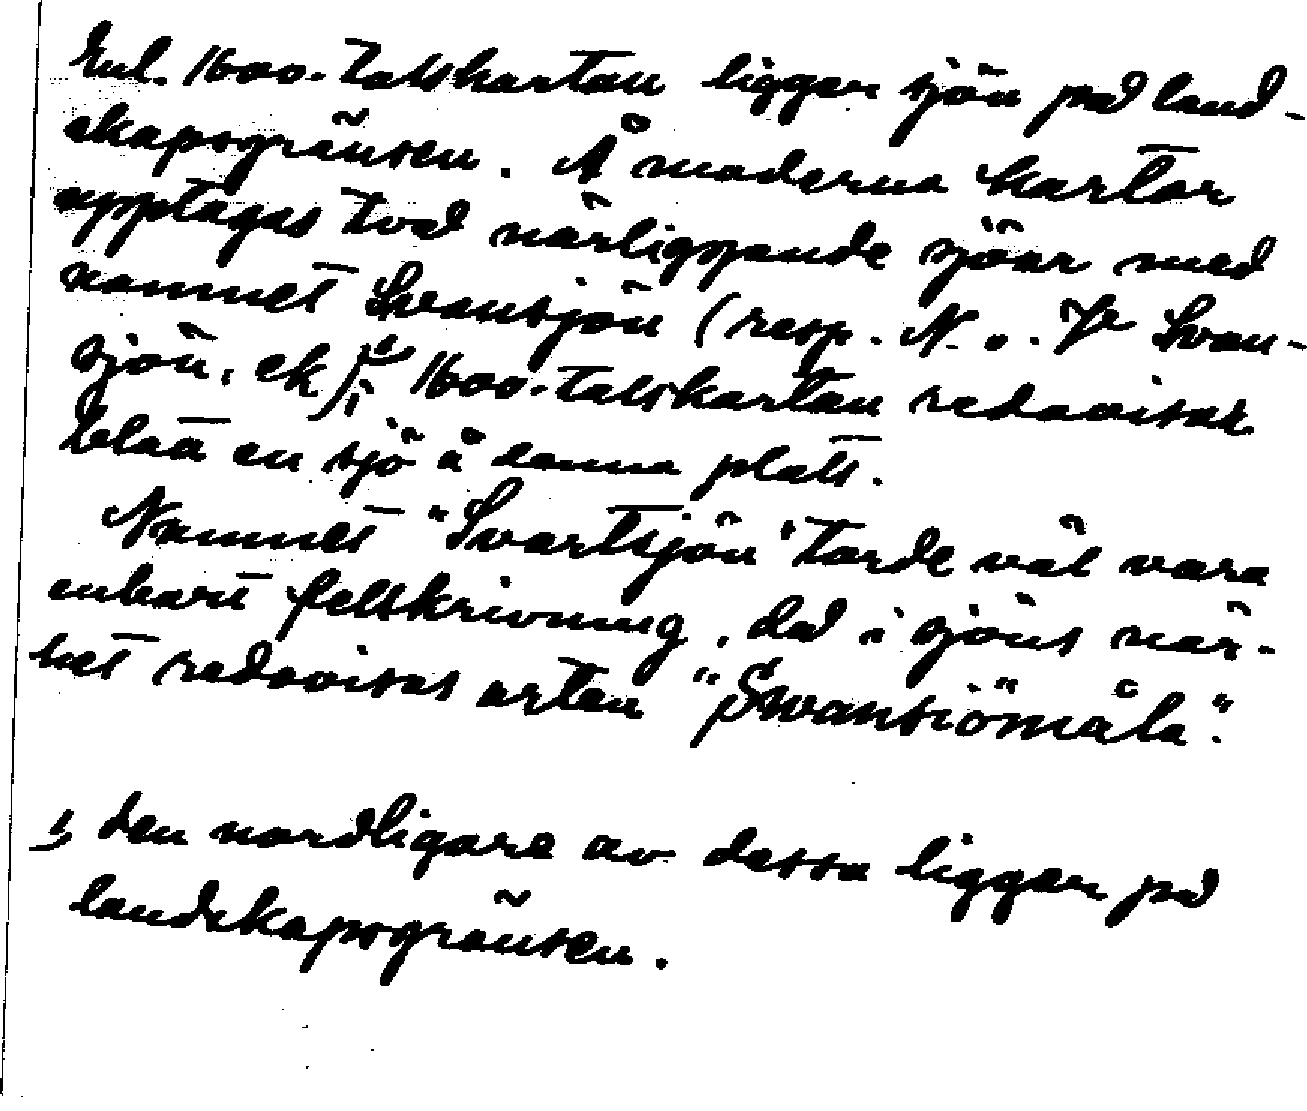 Enl. 1600-talskartan ligger sjön på land-
skapsgränsen. Å moderna kartor
upptagas två närliggande sjöar med
namnet Svansjön (resp. N. o. Svan-
sjön, ek) 1) I 1600-talskartan redovisas
blott en sjö å denna plats.
Namnet "Svartsjön" torde väl vara
enbart felskrivning, då i sjöns när-
het redovisas orten "Swansiömåla".
1) den nordligare av dessa ligger på
landskapsgränsen.